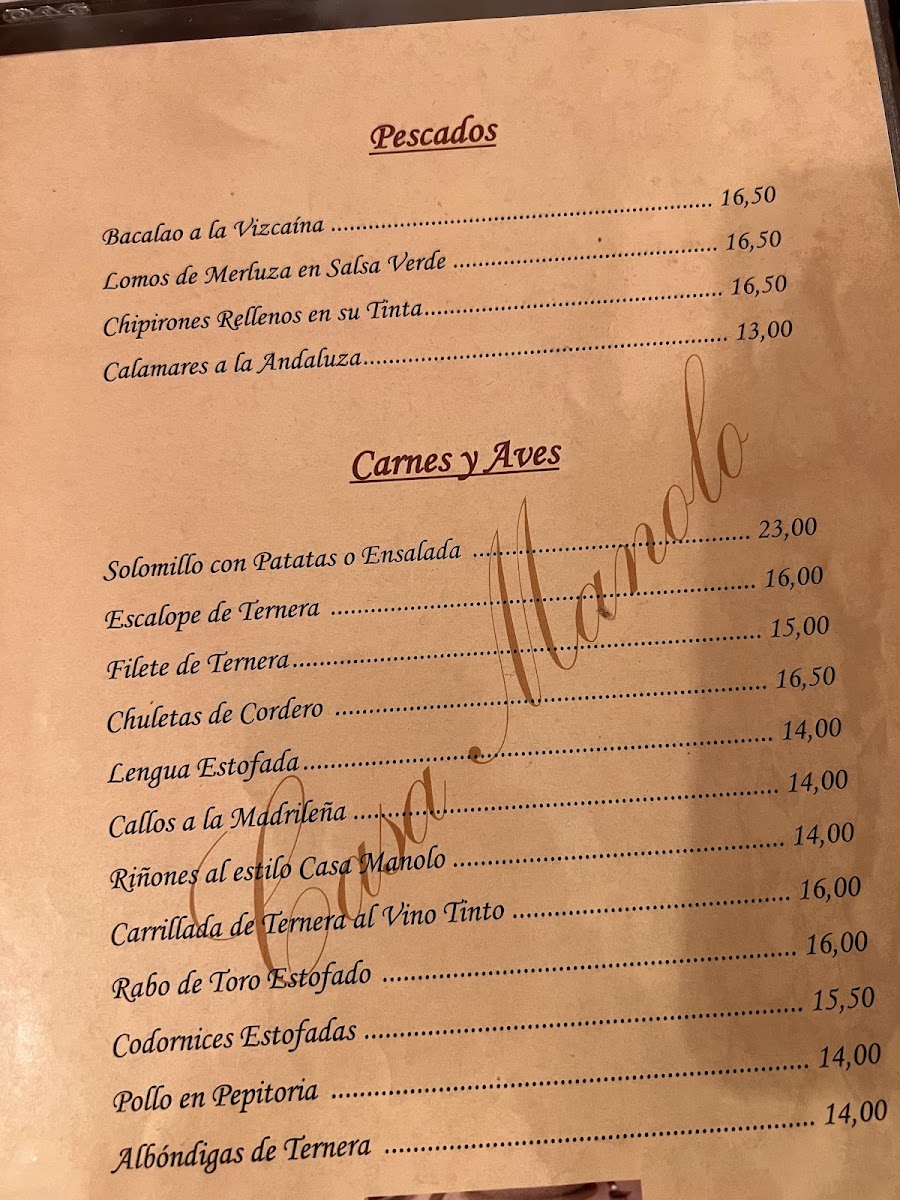 Pescados
Bacalao a la Vizcaína ............................................................. 16,50
Lomos de Merluza en Salsa Verde .......................................... 16,50
Chipirones Rellenos en su Tinta............................................... 16,50
Calamares a la Andaluza.......................................................... 13,00
Carnes y Aves
Solomillo con Patatas o Ensalada ............................................ 23,00
Escalope de Ternera .................................................................. 16,00
Filete de Ternera......................................................................... 15,00
Chuletas de Cordero .................................................................. 16,50
Lengua Estofada......................................................................... 14,00
Callos a la Madrileña ................................................................ 14,00
Riñones al estilo Casa Manolo ................................................. 14,00
Carrillada de Ternera al Vino Tinto ......................................... 16,00
Rabo de Toro Estofado .............................................................. 16,00
Codornices Estofadas ................................................................ 15,50
Pollo en Pepitoria ...................................................................... 14,00
Albóndigas de Ternera .............................................................. 14,00
Casa Manolo